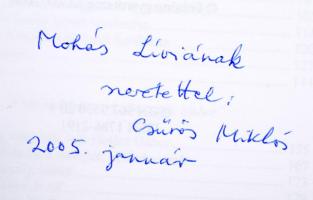 Mohás Líviának
szeretettel:
Csűrös Miklós
2005. január